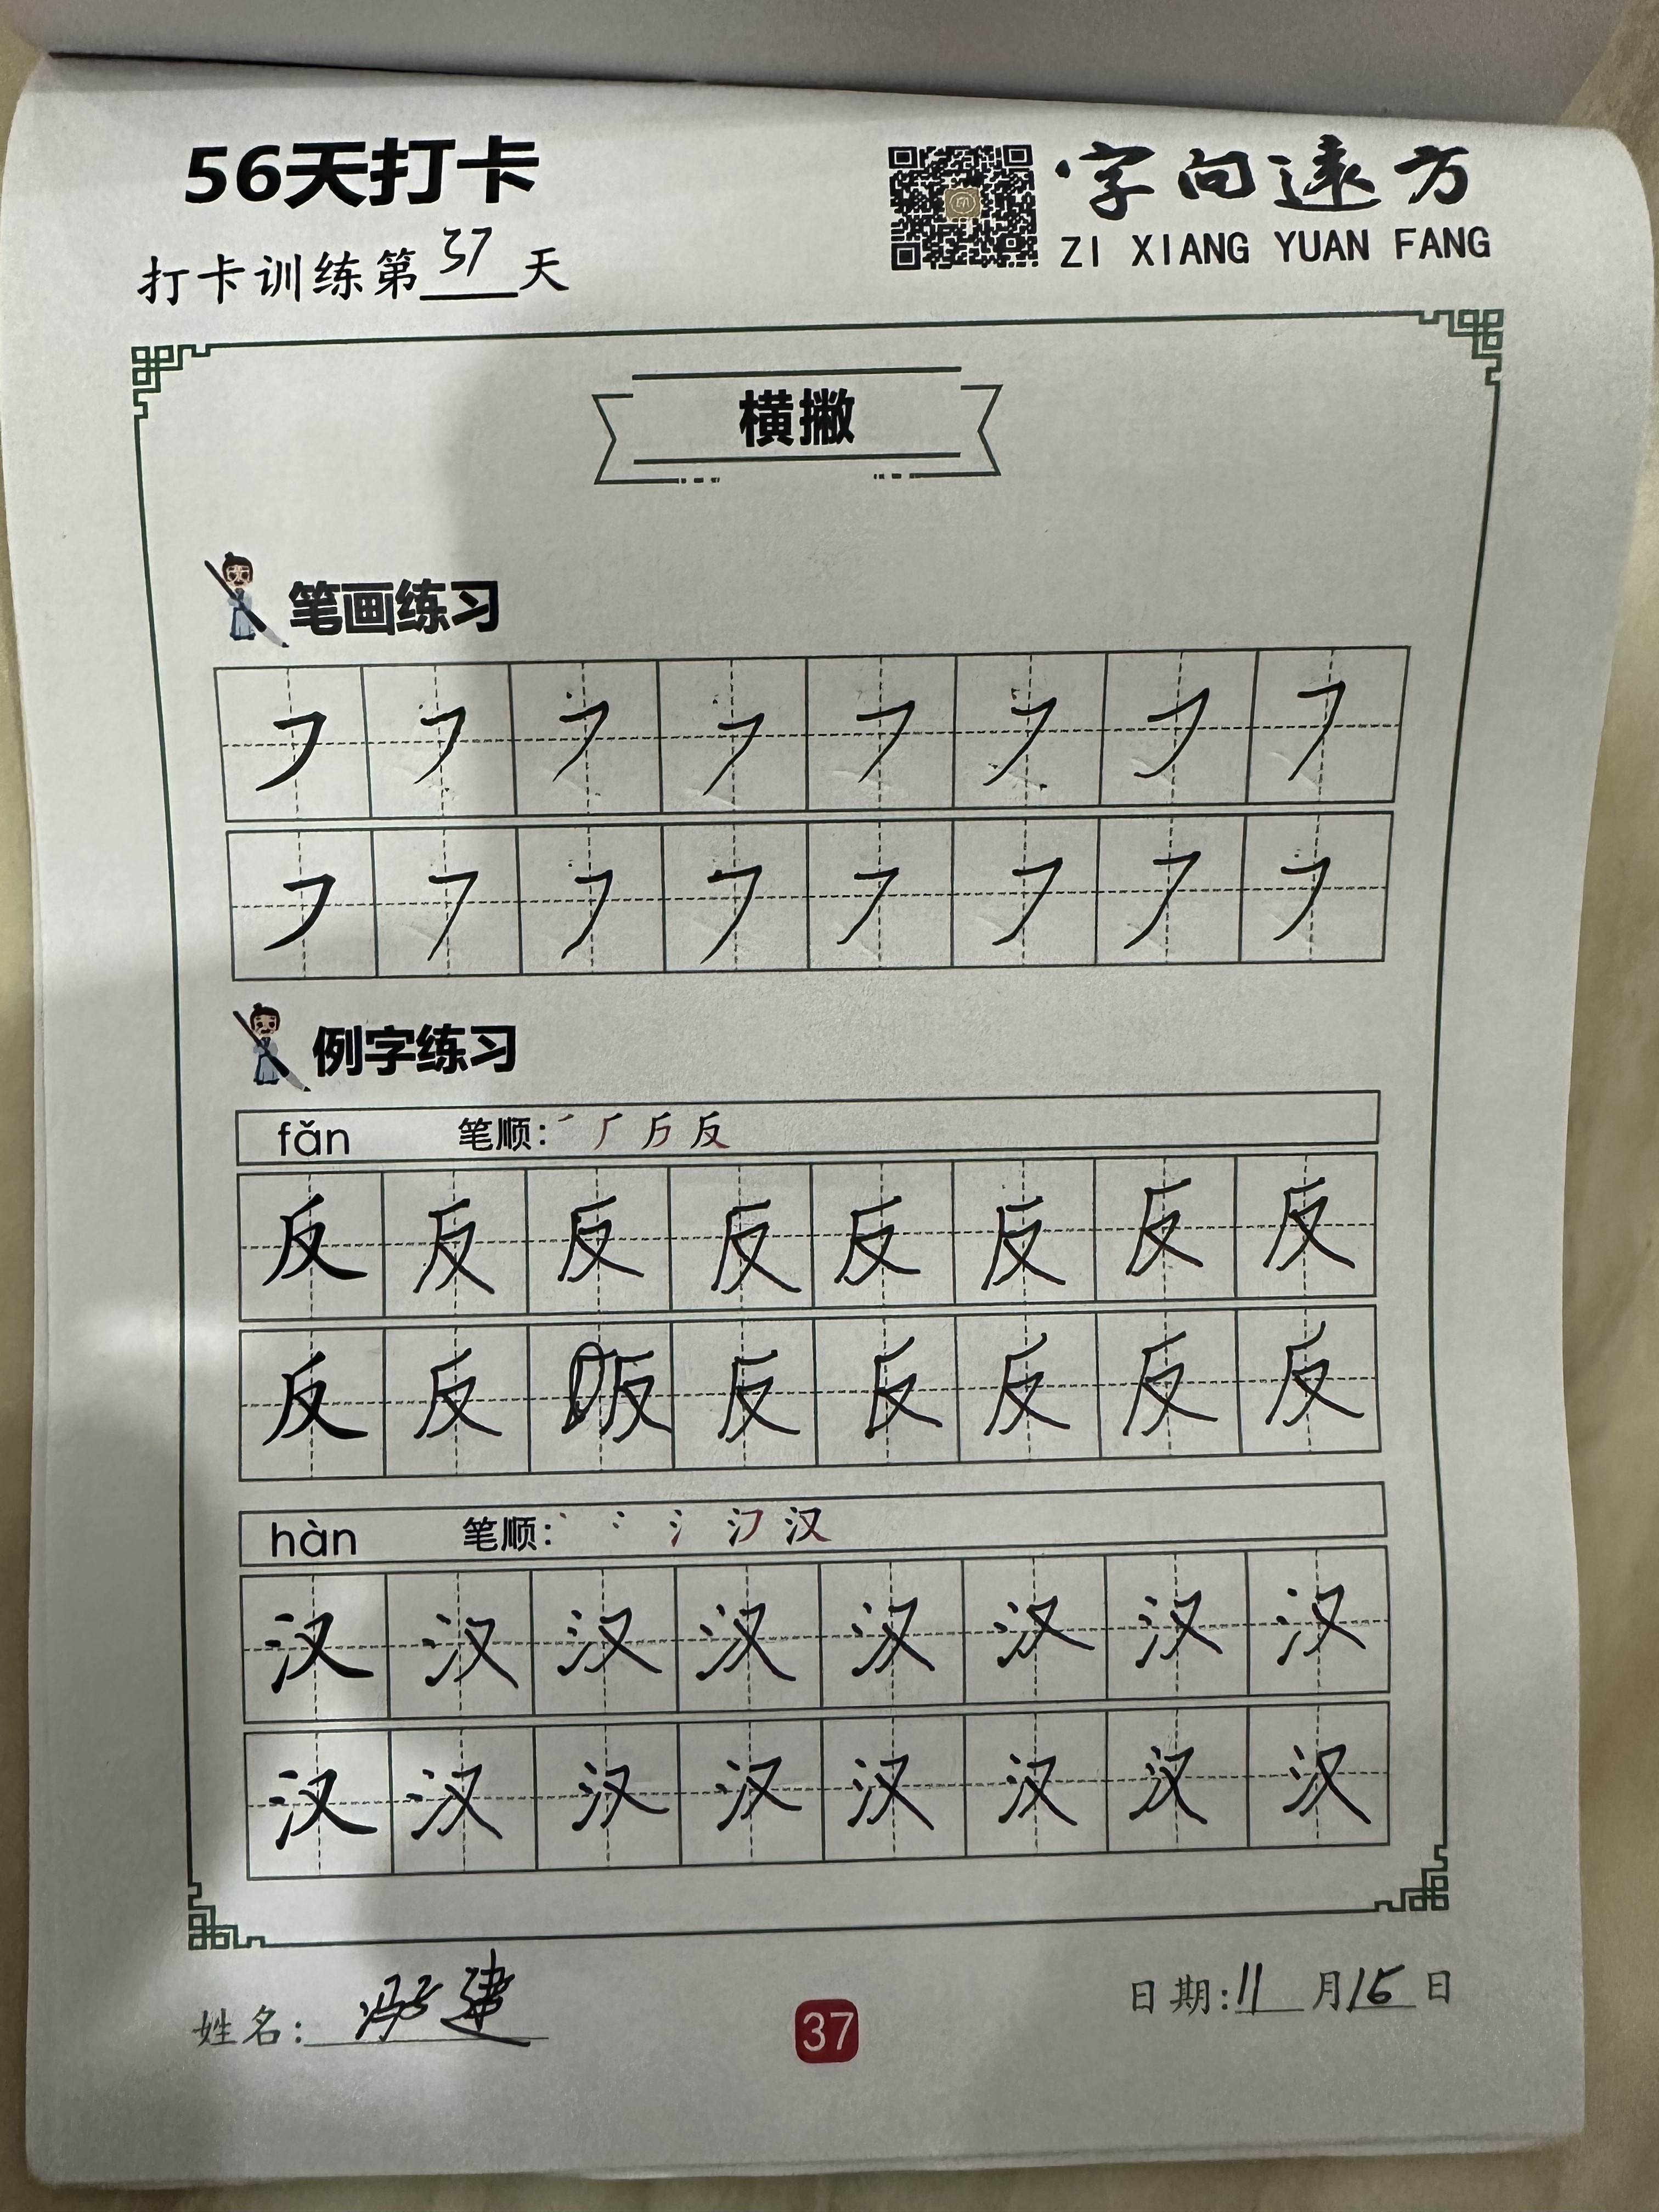 56天打卡
字向遠方
ZI XIANG YUAN FANG
打卡训练第37天
横撇
笔画练习
㇇ ㇇ ㇇ ㇇ ㇇ ㇇ ㇇ ㇇
㇇ ㇇ ㇇ ㇇ ㇇ ㇇ ㇇ ㇇
例字练习
fǎn 笔顺: 反
反 反 反 反 反 反 反 反
反 反 反 反 反 反 反 反
hàn 笔顺: 汉
汉 汉 汉 汉 汉 汉 汉 汉
汉 汉 汉 汉 汉 汉 汉 汉
姓名: 建
37
日期:11月15日